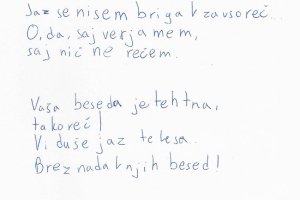 Jaz se nisem brigal za vso reč...
O, da, saj verjamem,
saj nič ne rečem.
Vaša beseda je tehtna,
tako reč!
Vi duše jaz telesa.
Brez nadaljnjih besed!